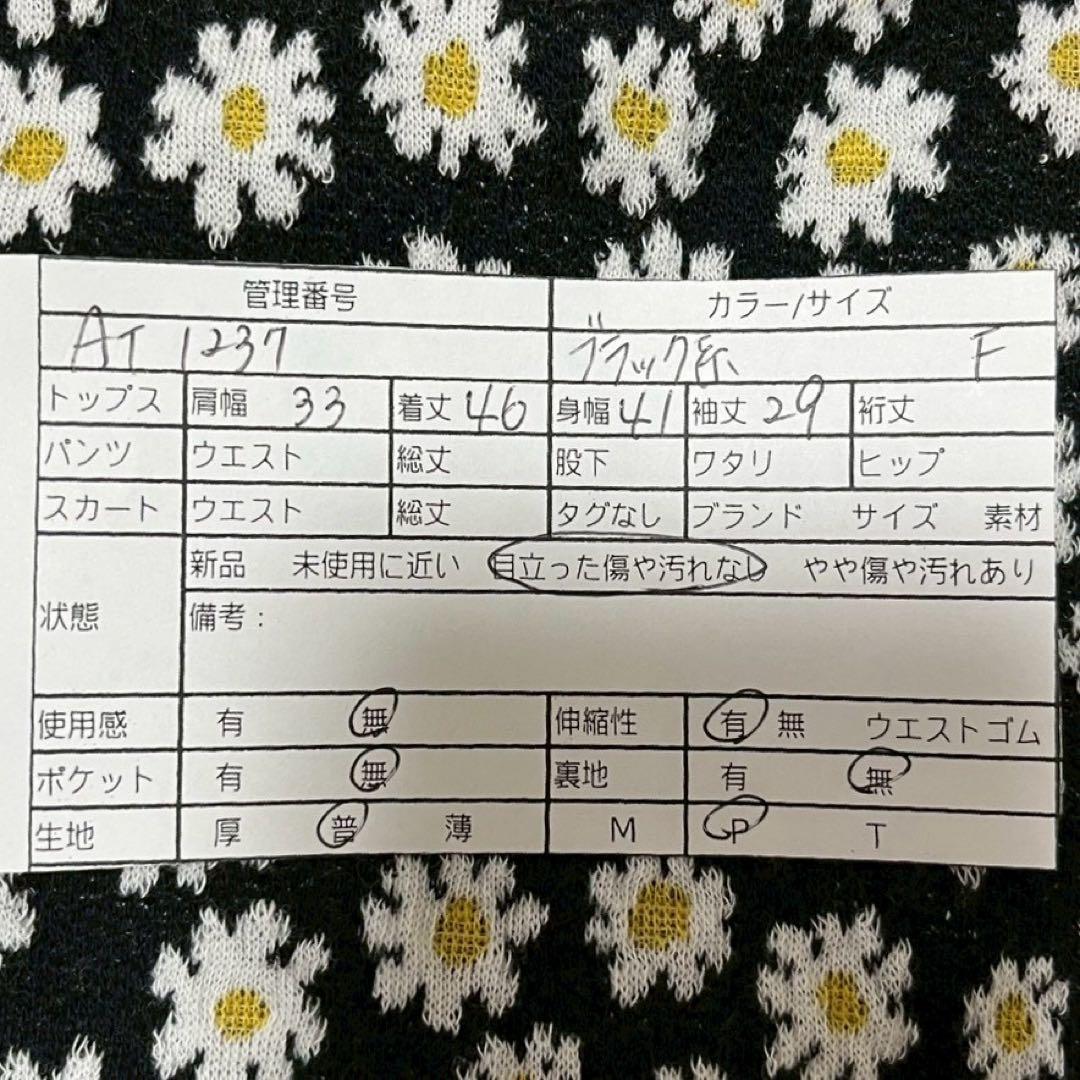 管理番号 カラー/サイズ
AT 1237 ブラック系 F
トップス 肩幅 33 着丈 46 身幅 41 袖丈 29 裄丈
パンツ ウエスト 総丈 股下 ワタリ ヒップ
スカート ウエスト 総丈 タグなし ブランド サイズ 素材
状態 新品 未使用に近い 目立った傷や汚れなし やや傷や汚れあり
備考：
使用感 有 無 伸縮性 有 無 ウエストゴム
ポケット 有 無 裏地 有 無
生地 厚 普 薄 M P T